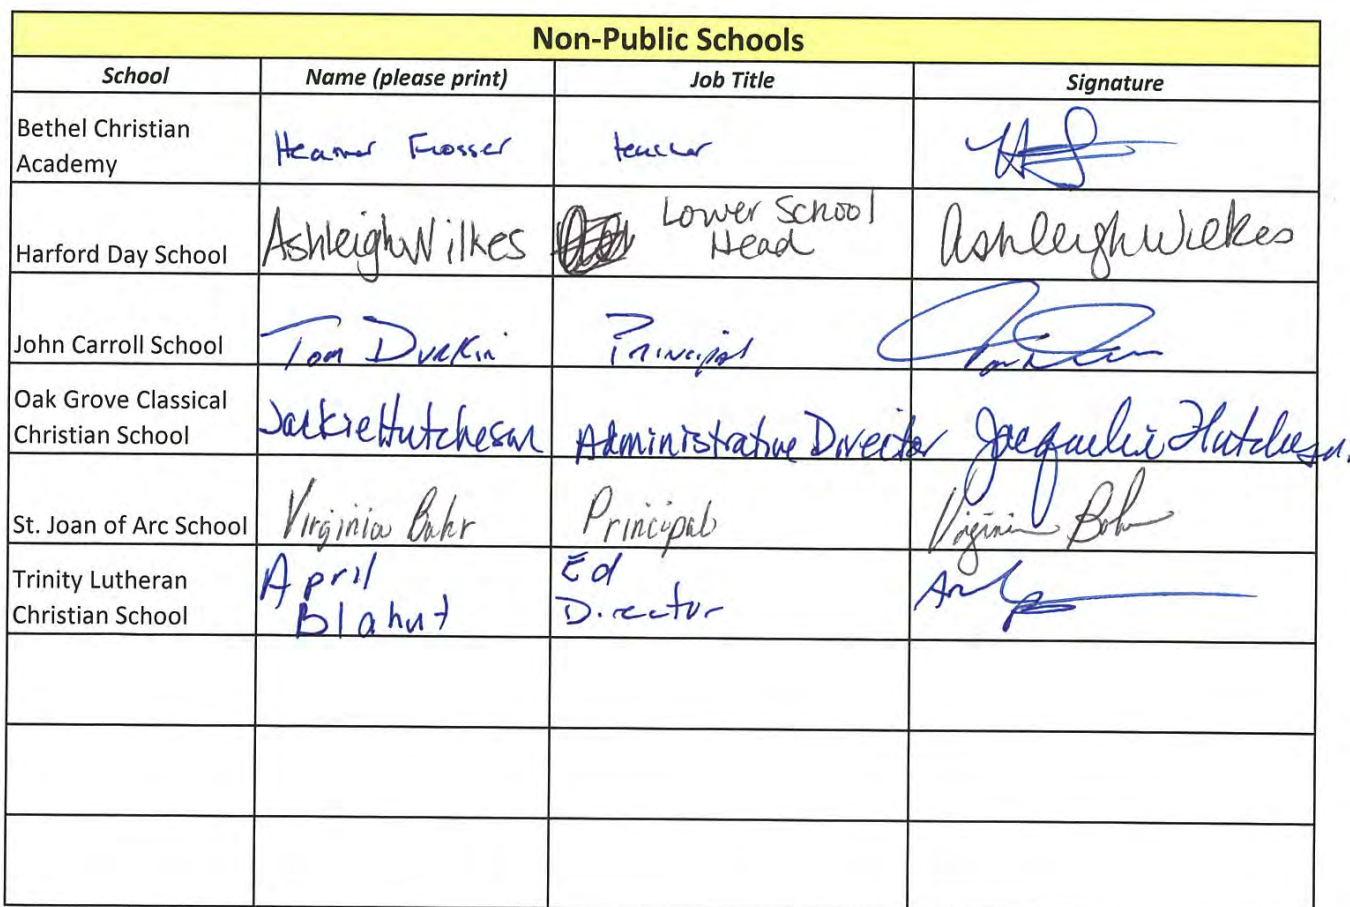 Non-Public Schools
School Name (please print) Job Title Signature
Bethel Christian
Academy
teacher
Harford Day School
Ashleigh Wilkes
Lower School
Head
Ashleigh Wilkes
John Carroll School
Tom Durkin
Principal
Oak Grove Classical
Christian School
Jackie Hutcheson
Administrative Director
Jacquelin Hutcheson
St. Joan of Arc School
Virginia Bahr
Principal
Virginia Bahr
Trinity Lutheran
Christian School
April
Blahut
Ed
Director